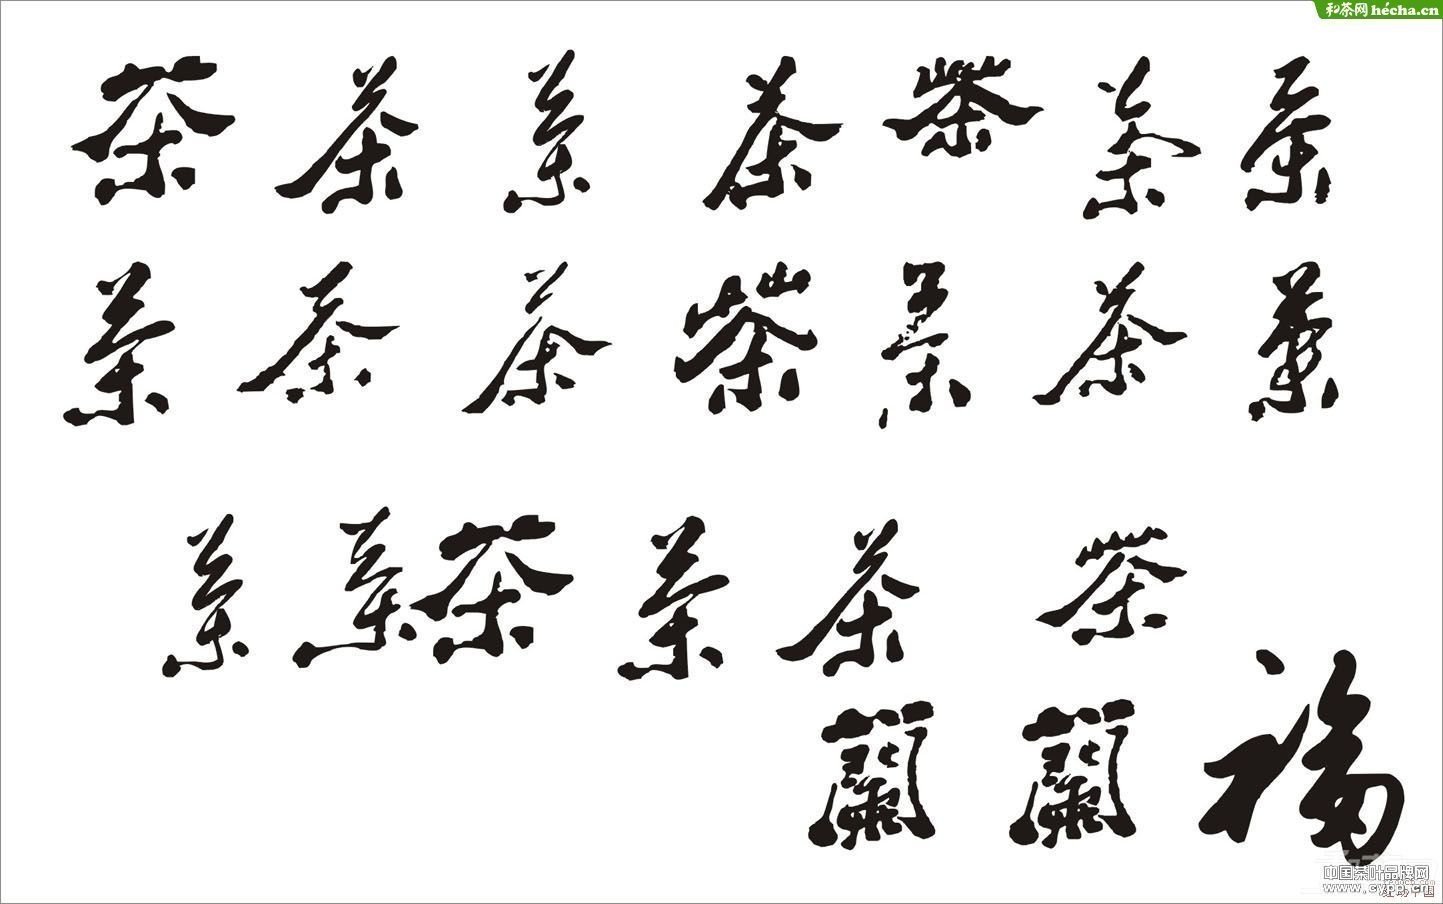 和茶网 hécha.cn
茶 茶 茶 茶 茶 茶 茶
茶 茶 茶 茶 茶 茶 茶
茶 茶 茶 茶 茶 茶
蘭 蘭 福
中国茶叶品牌网
www.cypp.cn